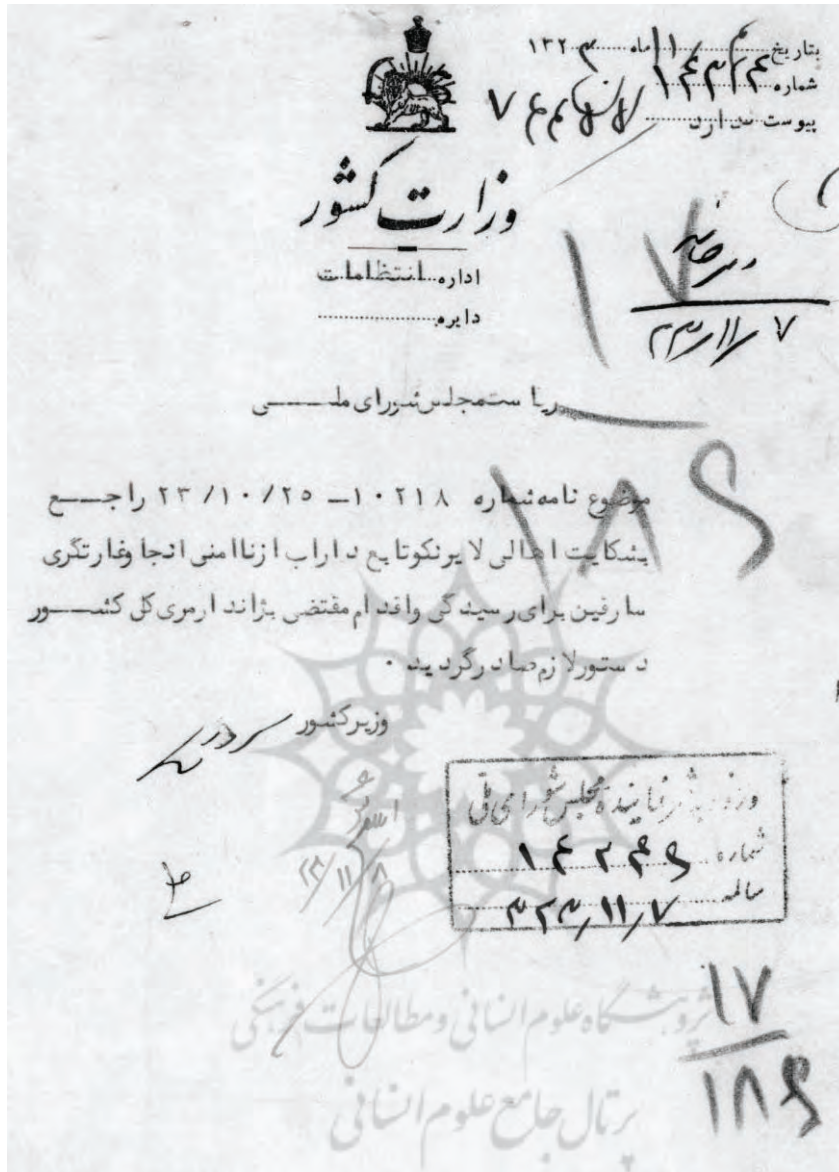 بتاریخ ۱۱ ماه ۱۳۲۳
شماره
پیوست ندارد
وزارت کشور
اداره انتظامات
دایره
۲۳/۱۱/۷
۱۷
۱۸۶
ریاست مجلس شورای ملی
موضوع نامه شماره ۱۰۲۱۸ – ۲۳/۱۰/۲۵ راجع
بشکایت اهالی لایزنکو تابع داراب از ناامنی انجا وغارتگری
سارقین برای رسیدگی واقدام مقتضی بژاندارمری کل کشور
دستور لازم صادر گردید .
وزیر کشور
۲۳/۱۱/۸
مجلس شورای ملی
شماره
۳۲۳/۱۱/۷
۱۷
۱۸۶
پژوهشگاه علوم انسانی و مطالعات فرهنگی
پرتال جامع علوم انسانی